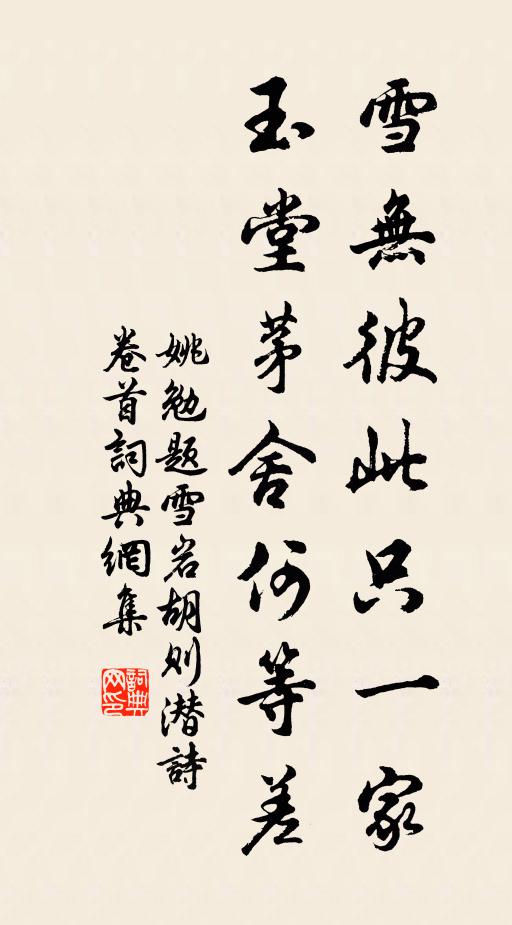 雪無彼此只一家
玉堂茅舍何等差
姚勉題雪岩胡则潛詩
卷首詞典網集
詞典
网印